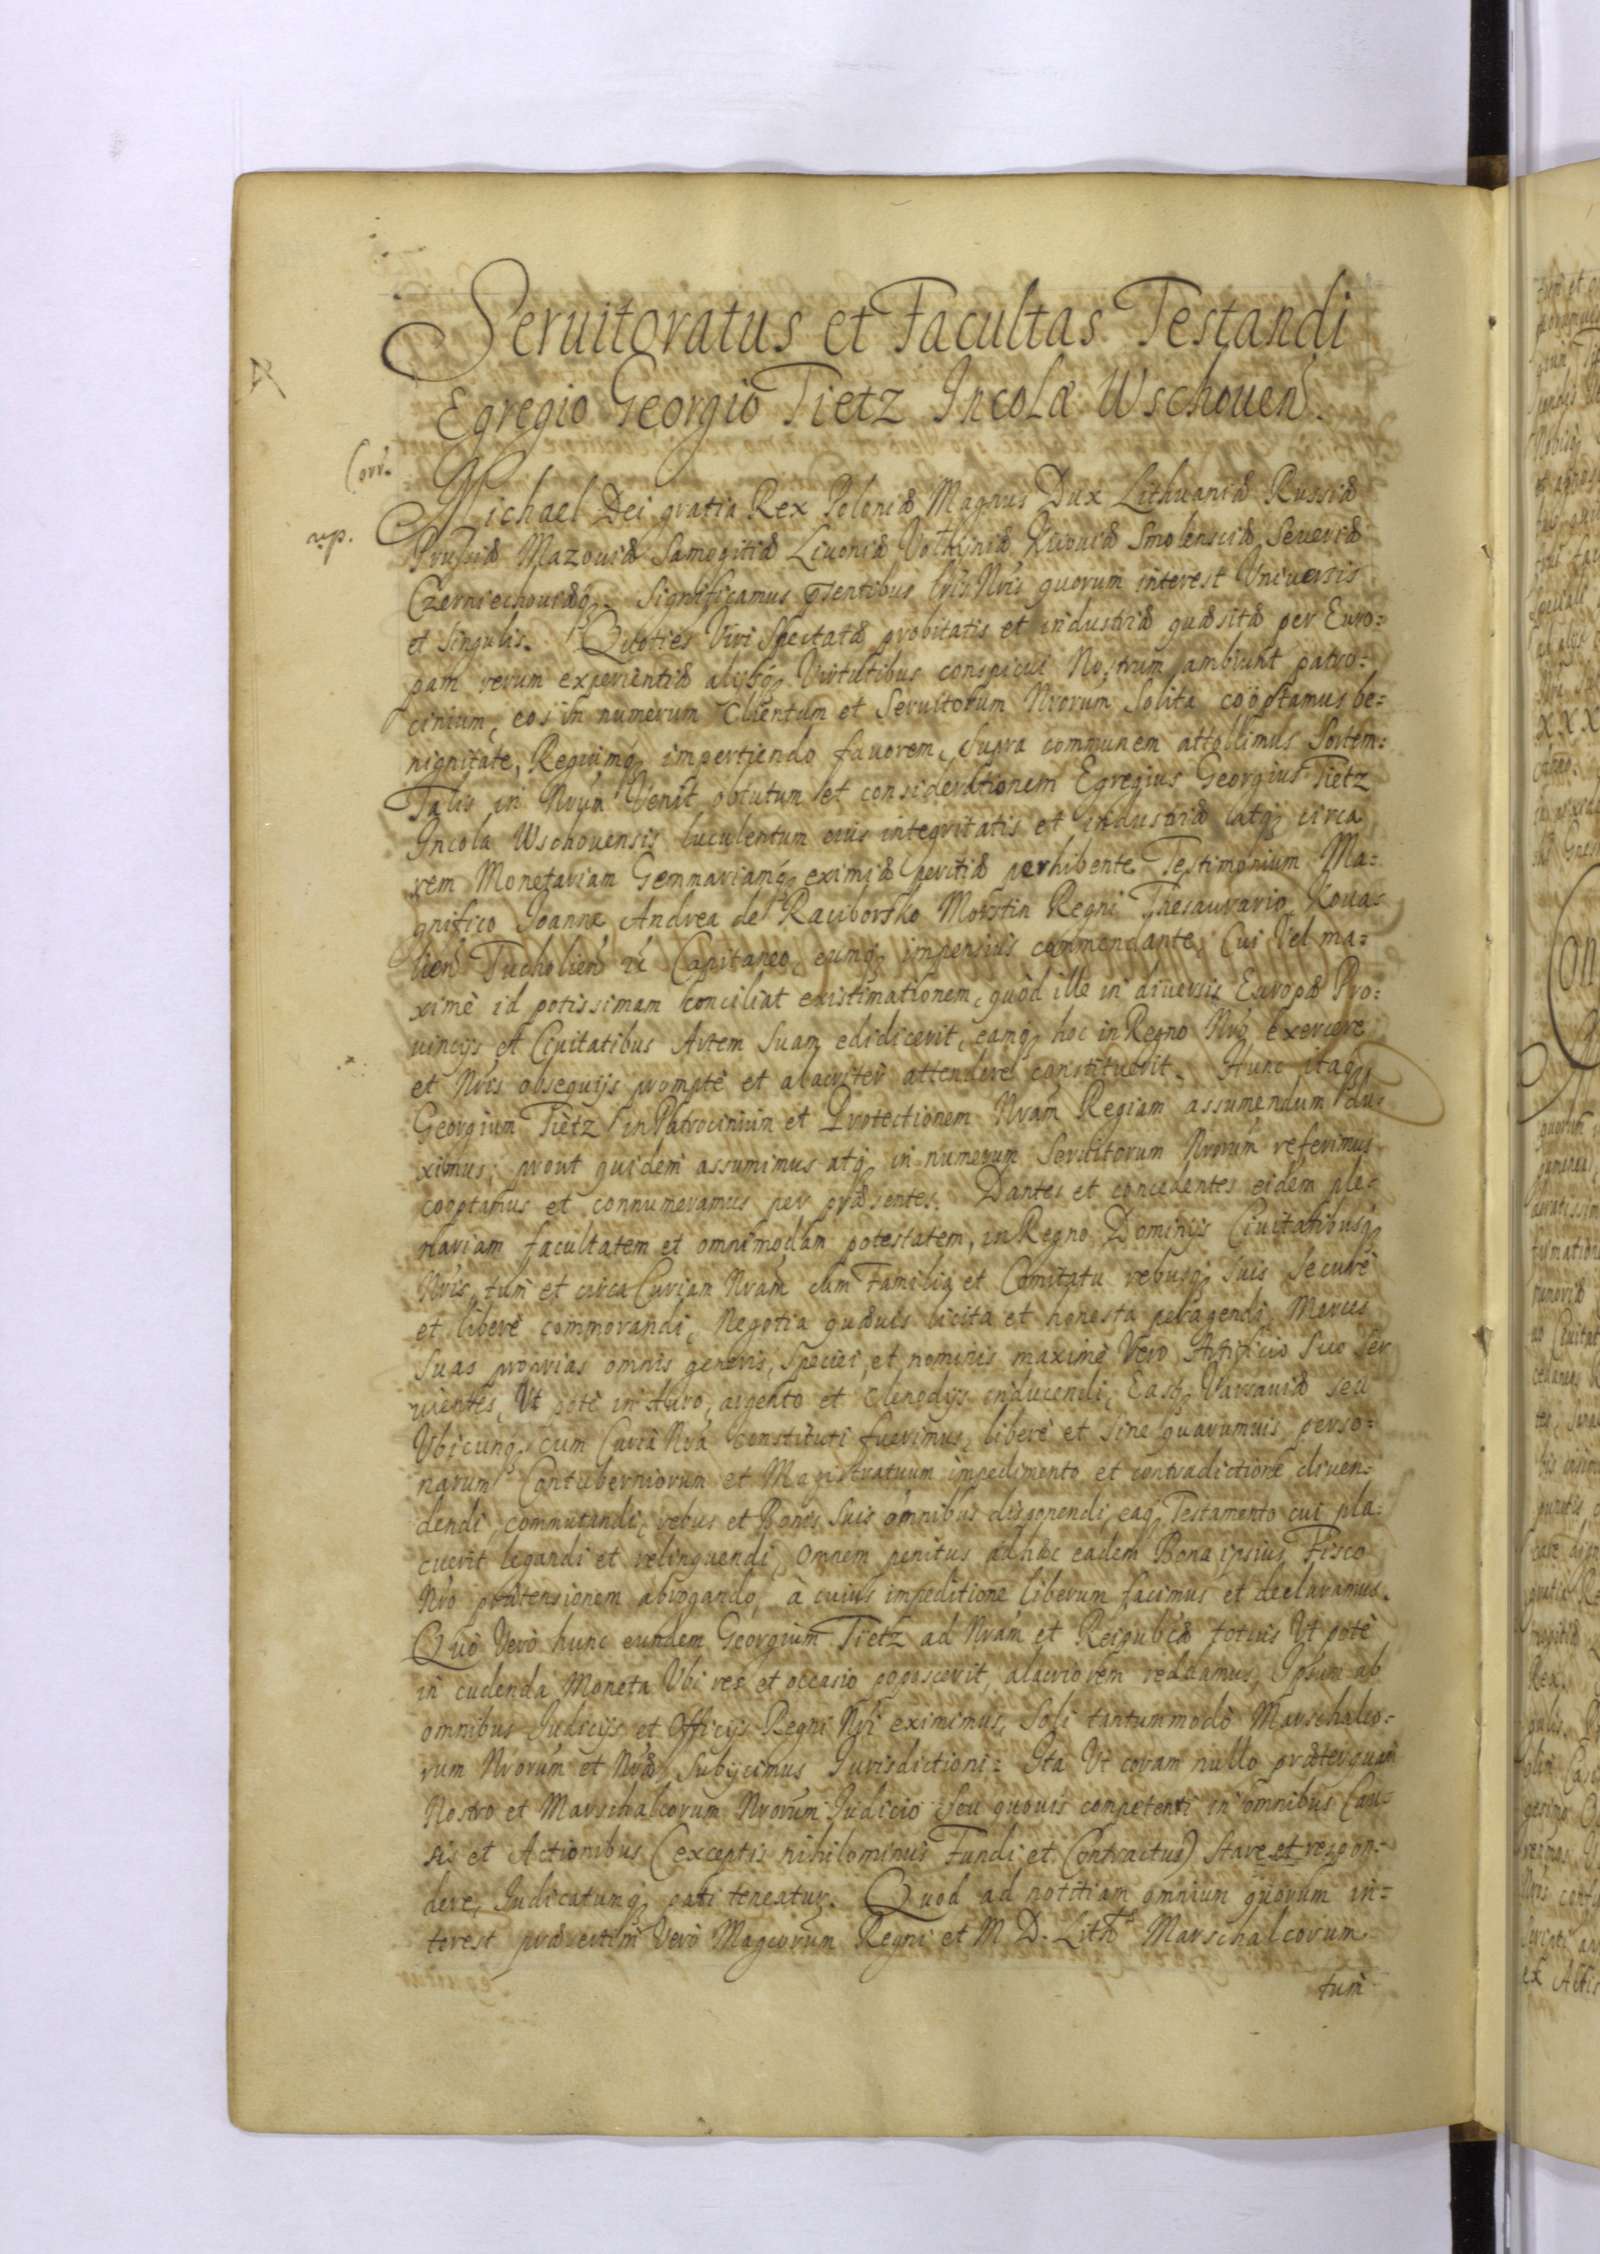 Seruitoratus et Facultas Testandi
Egregio Georgio Tietz Incolæ Wschouen.
Corr.
Michael Dei gratia Rex Poloniæ Magnus Dux Lithuaniæ Russiæ
Prussiæ Mazouiæ Samogitiæ Liuoniæ Volhyniæ Kiiouiæ Smolensciæ Seueriæ
Czerniechouiæq. Significamus pñtibus lris Nris quorum interest Vniuersis
et Singulis. Quoties Viri Spectatæ probitatis et industriæ quæsitæ per Euro=
pam rerum experientiæ alijsq Virtutibus conspicui Nostrum ambiunt patro=
cinium, eos in numerum Clientum et Seruitorum Nrorum Solita cooptamus be=
nignitate, Regiumq impertiendo fauorem, Supra communem attollimus Sortem.
Talis in Nrum Venit obtutum et considerationem Egregius Georgius Tietz
Incola Wschouensis luculentum eius integritatis et industriæ atq circa
rem Monetariam Gemmariamq eximiæ peritiæ perhibente Testimonium Ma=
gnifico Joanne Andrea de Raciborsko Morstin Regni Thesaurario Koua=
lien Tucholien Capitaneo, eumq impensius commendante, Cui Vel ma=
ximè id potissimam conciliat existimationem, quòd ille in diuersis Europæ Pro=
uincijs et Ciuitatibus Artem Suam edidicerit, eamq hoc in Regno Nro exercere
et Nris obsequijs promptè et alacriter attendere constituerit. Hunc itaq
Georgium Tietz in Patrocinium et Protectionem Nram Regiam assumendum du=
ximus; prout quidem assumimus atq in numerum Seruitorum Nrorum referimus
cooptamus et connumeramus per præsentes. Dantes et concedentes eidem ple=
nariam facultatem et omnimodam potestatem, in Regno Dominijs Ciuitatibusq
Nris, tum et circa Curiam Nram cum Familia et Comitatu rebusq Suis Securè
et liberè commorandi, Negotia quæuis licita et honesta peragendi, Merces
Suas proprias omnis generis, Speciei, et nominis maximè Vero Artificio Suo Ser
uientes, Vt potè in Auro, argento et Clenodijs inducendi, Easq Varsauiæ seu
Vbicunq cum Curia Nra constituti fuerimus, liberè et Sine quarumuis perso=
narum Contuberniorum et Magistratuum impedimento et contradictione diuen=
dendi, commutandi, rebus et Bonis Suis omnibus disponendi, eaq Testamento cui pla=
cuerit legandi et relinquendi, Omnem penitus ad hæc eadem Bona ipsius Fisco
Nro prætensionem abrogando, à cuius impeditione liberum facimus et declaramus.
Quò Verò hunc eundem Georgium Tietz ad Nram et Reipubcæ totius Vt potè
in cudenda Moneta Vbi res et occasio poposcerit, alacriorem reddamus, Ipsum ab
omnibus Judicijs et Officijs Regni Nri eximimus, Soli tantummodò Marschalco=
rum Nrorum et Nræ Subijcimus Jurisdictioni: Ita Vt coram nullo præterquam
Nostro et Marschalcorum Nrorum Judicio Seu quouis competenti in omnibus Cau=
sis et Actionibus (exceptis nihilominus Fundi et Contractus) Stare et respon=
dere, Judicatumq pati teneatur. Quod ad notitiam omnium quorum in=
terest præsertim Verò Magcorum Regni et M. D. Lith Marschalcorum
tum